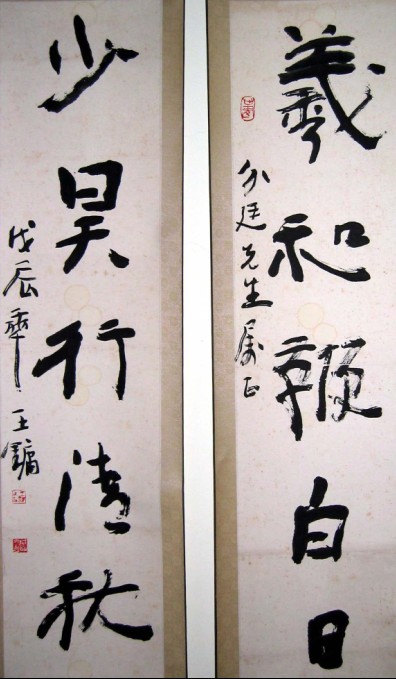 羲和鞭白日
廷先生属正
少昊行清秋
戊辰秊王鏞